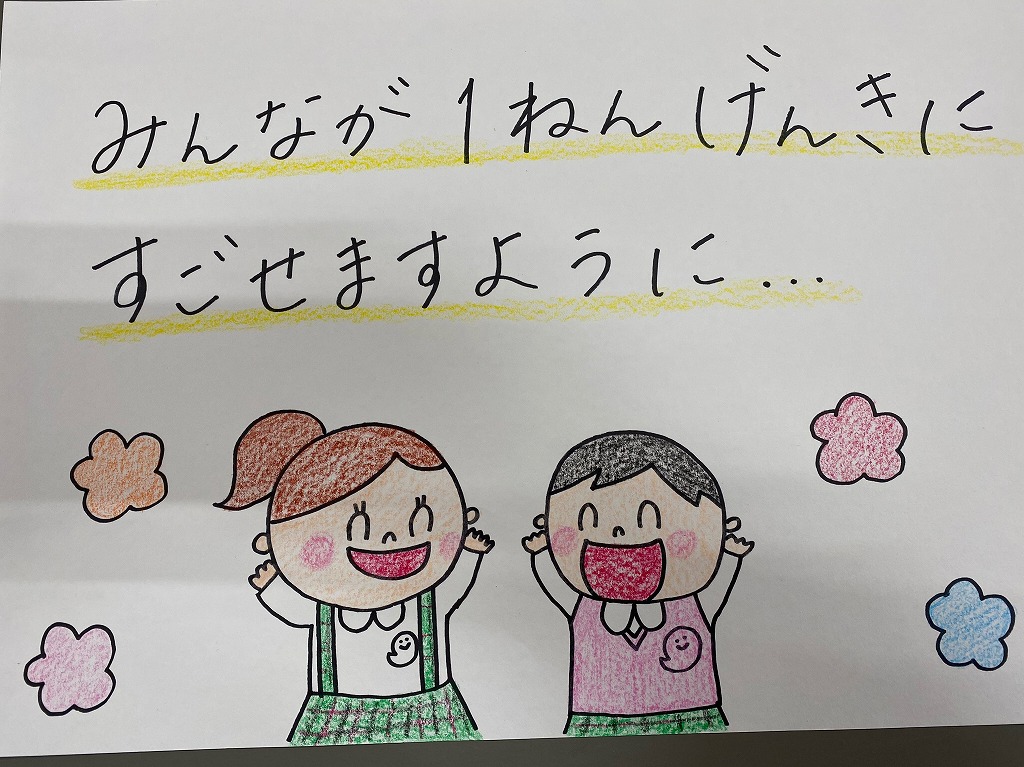 みんなが1ねんげんきに
すごせますように...